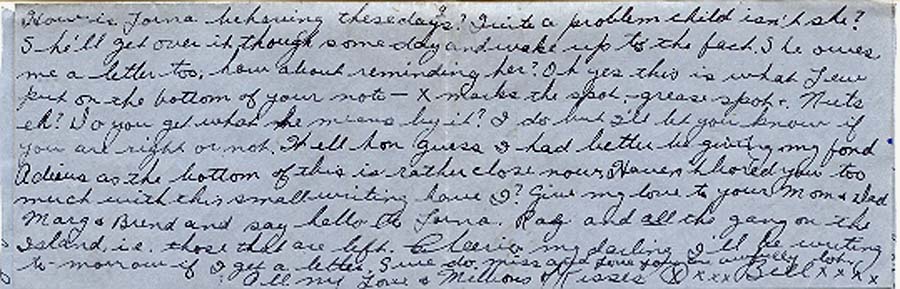 How is Lorna behaving these days? Quite a problem child isn't she?
She'll get over it, though some day and wake up to the fact. She owes
me a letter too; how about reminding her? Oh yes this is what Lew
put on the bottom of your note — X marks the spot, - grease spot. Nuts
eh? Do you get what he means by it? I do but I'll let you know if
you are right or not. Well hon guess I had better be giving my fond
Adieus as the bottom of this is rather close now. Haven't bored you too
much with this small writing have I? Give my love to your Mom & Dad
Marg & Brend and say hello to Lorna. and all the gang on the
Island i.e. those that are left. Cheerio my darling I'll be writing
to-morrow if I get a letter. Sure do miss and love you an awfully lot.
All my Love & Millions of Kisses X x x x Bill x x x x